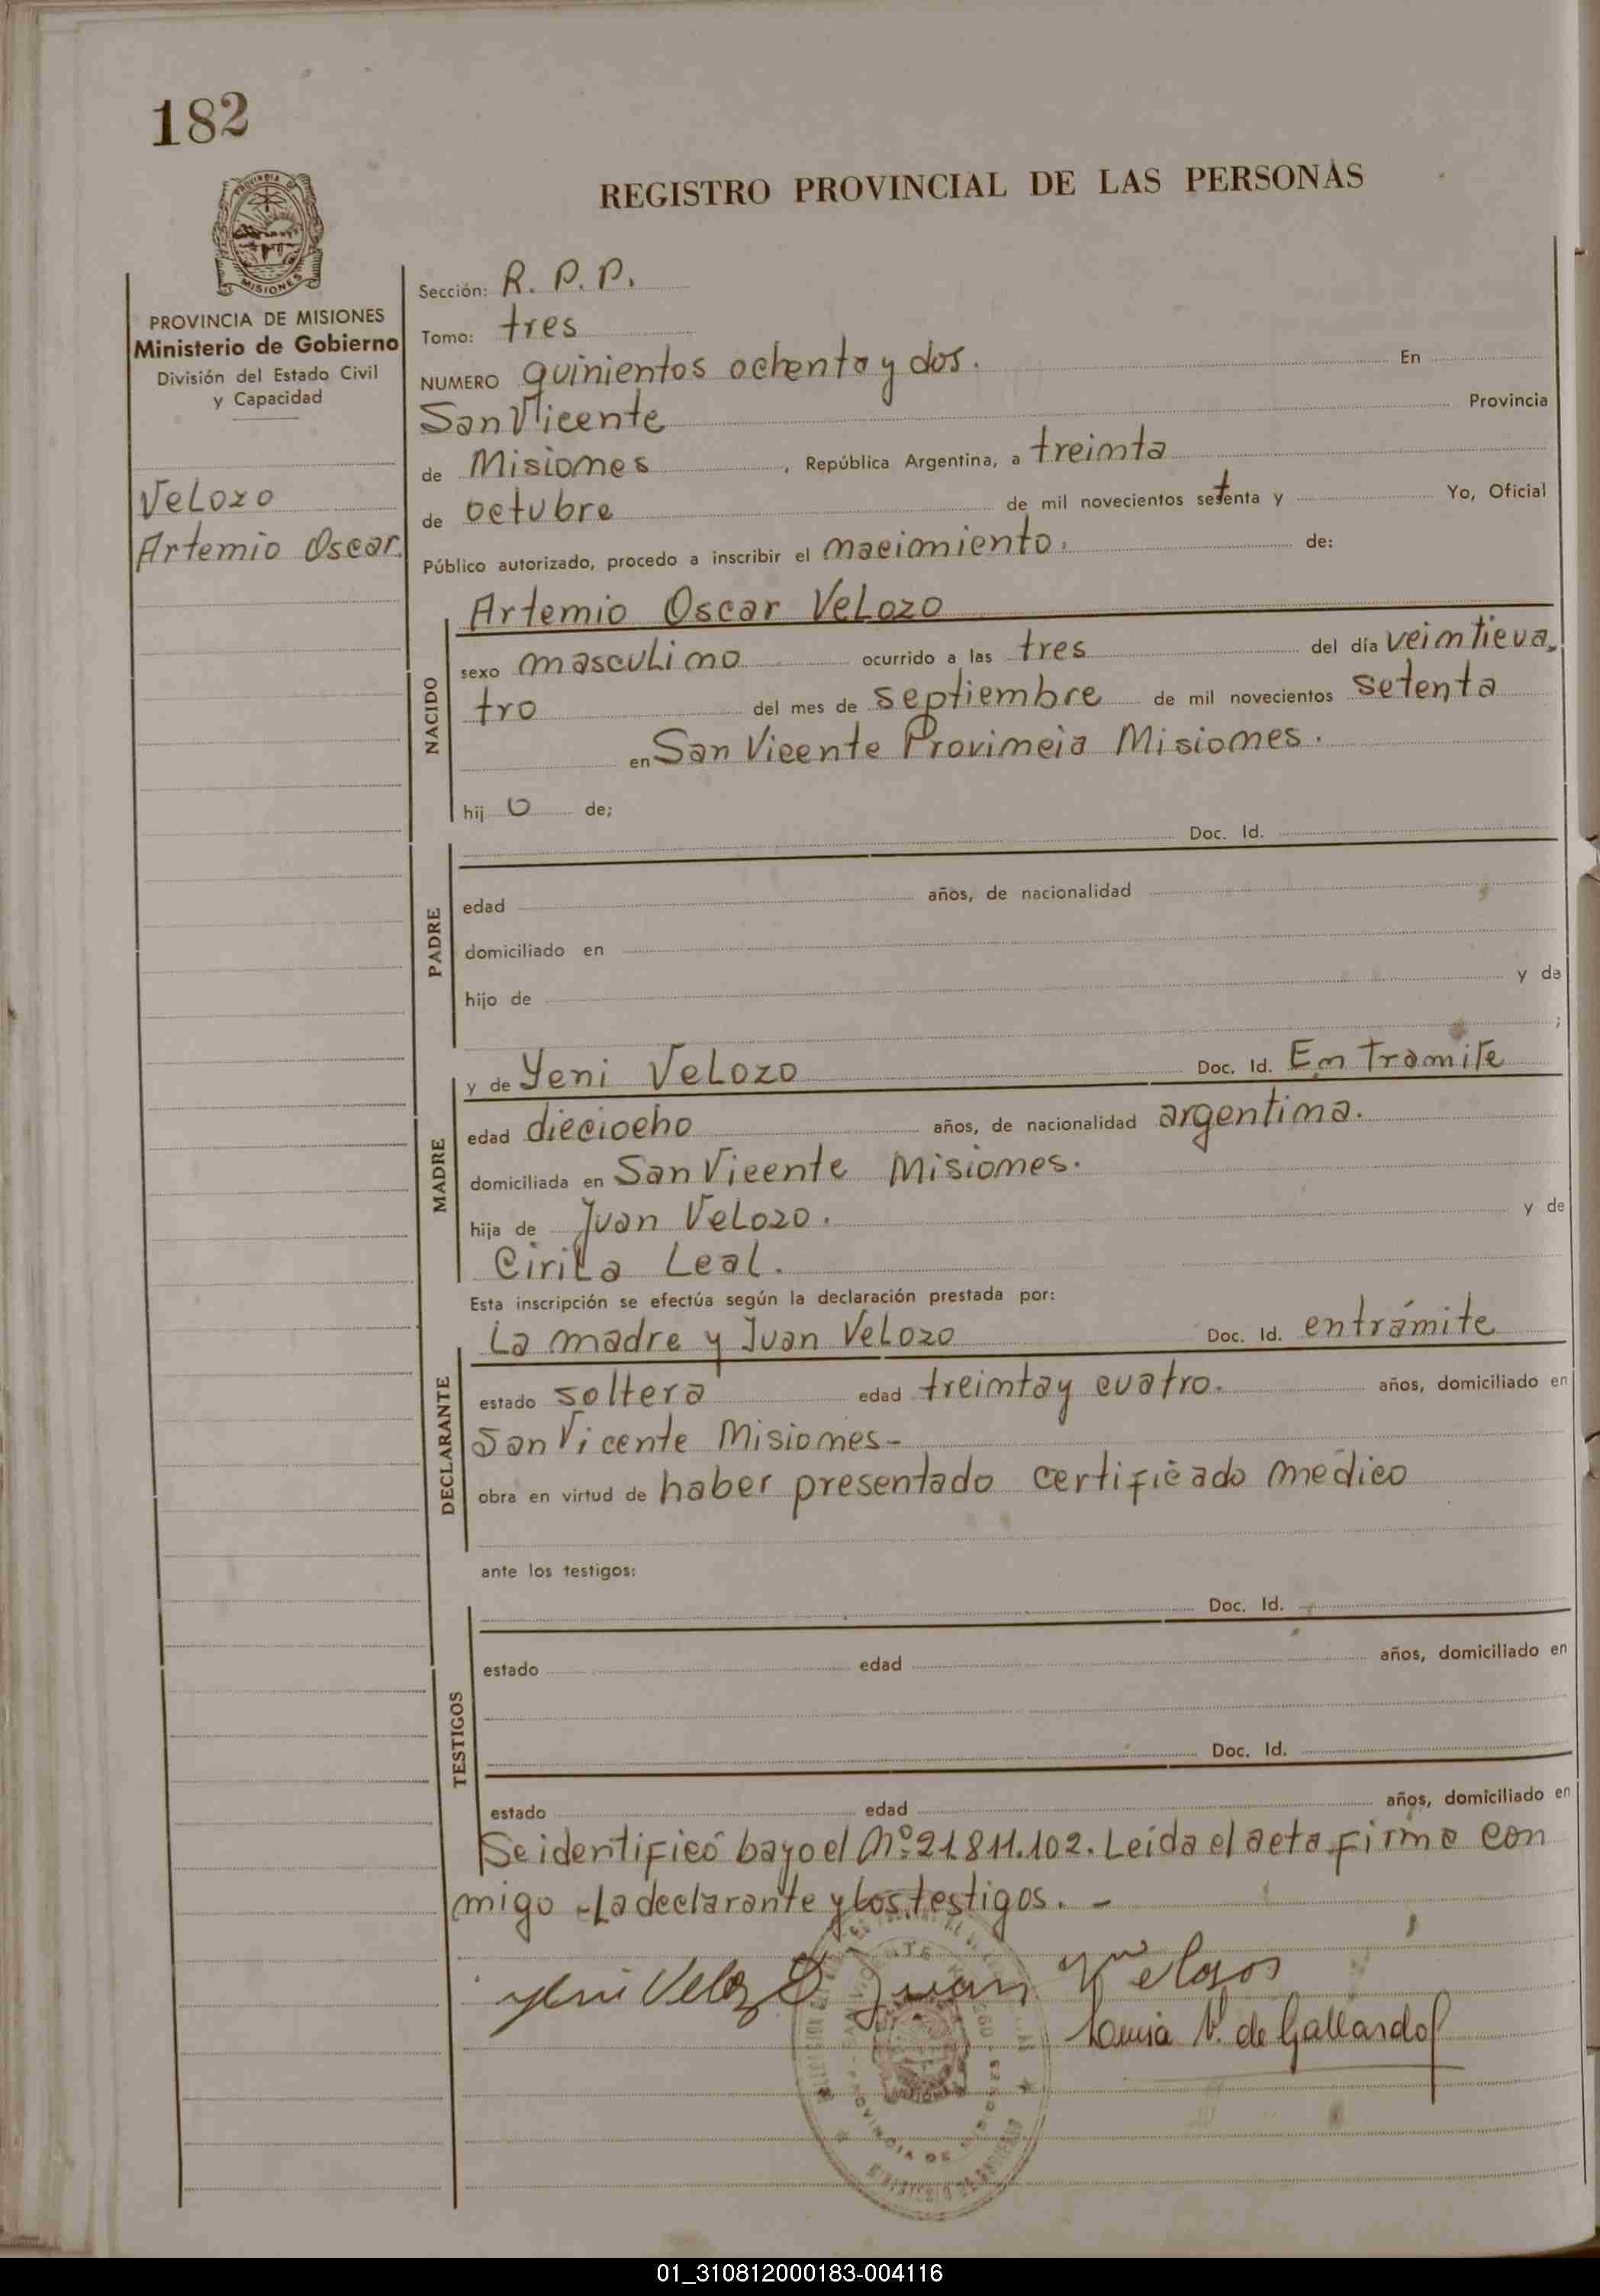 182
REGISTRO PROVINCIAL DE LAS PERSONAS
PROVINCIA DE
MISIONES
PROVINCIA DE MISIONES
Ministerio de Gobierno
División del Estado Civil
y Capacidad
Velozo
Artemio Oscar.
Sección: R. P. P.
Tomo: tres
NUMERO quinientos ochenta y dos. En
San Vicente Provincia
de Misiones, República Argentina, a treinta
de octubre de mil novecientos setenta y Yo, Oficial
Público autorizado, procedo a inscribir el nacimiento. de:
NACIDO
Artemio Oscar Velozo
sexo masculino ocurrido a las tres del día veinticua
tro del mes de septiembre de mil novecientos setenta
en San Vicente Provincia Misiones.
hij o de;
PADRE
Doc. Id.
edad años, de nacionalidad
domiciliado en
hijo de y de
;
MADRE
y de Yeni Velozo Doc. Id. En Tramite
edad dieciocho años, de nacionalidad argentina.
domiciliada en San Vicente Misiones.
hija de Juan Velozo. y de
Cirila Leal.
Esta inscripción se efectúa según la declaración prestada por:
DECLARANTE
La madre y Juan Velozo Doc. Id. entrámite
estado soltera edad treintay cuatro. años, domiciliado en
San Vicente Misiones-
obra en virtud de haber presentado certificado médico
ante los testigos:
TESTIGOS
Doc. Id.
estado edad años, domiciliado en
Doc. Id.
estado edad años, domiciliado en
Se identificó bayo el Nº 21.811.102. Leída el acta firma con
migo -La declarante y los testigos. -
Yeni Velozo Juan Velosos
Luisa V. de Gallardo
PROVINCIA DE MISIONES
01_310812000183-004116